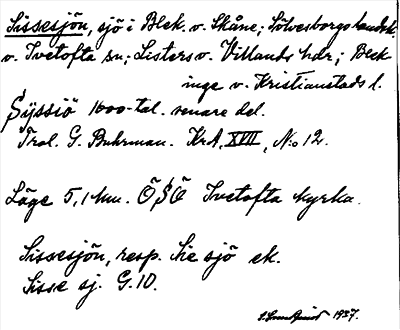 Sissesjön, sjö i Blek. o. Skåne; Sölvesborgs landsk.
o. Ivetofta sn; Listers o. Villands hdr; Blek
inge o. Kristianstads l.
Syssiö 1600-tal. senare del.
Trol. G. Buhrman. KrA, XVII, No 12.
Läge 5,1 km. ÖSÖ Ivetofta kyrka.
Sissesjön, resp. Sie sjö ek.
Sisse sj. G.10.
1937.